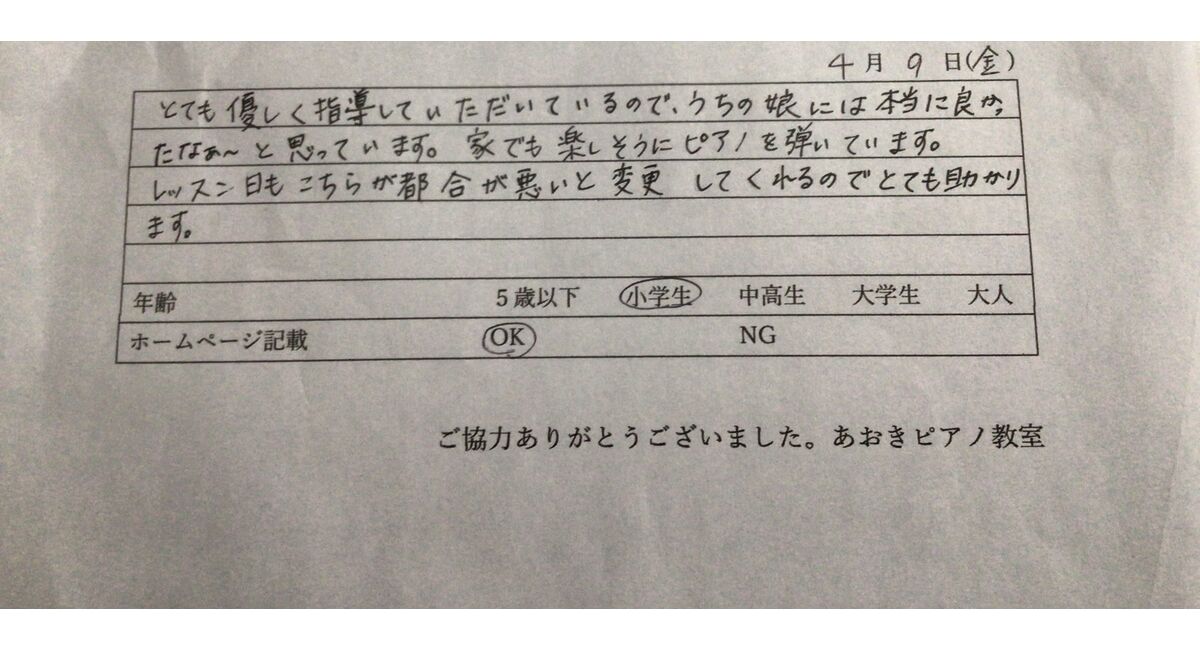 4月9日(金)
とても優しく指導していただいているので、うちの娘には本当に良かっ
たなぁ～と思っています。家でも楽しそうにピアノを弾いています。
レッスン日もこちらが都合が悪いと変更してくれるのでとても助かり
ます。
年齢 5歳以下 小学生 中高生 大学生 大人
ホームページ記載 OK NG
ご協力ありがとうございました。あおきピアノ教室